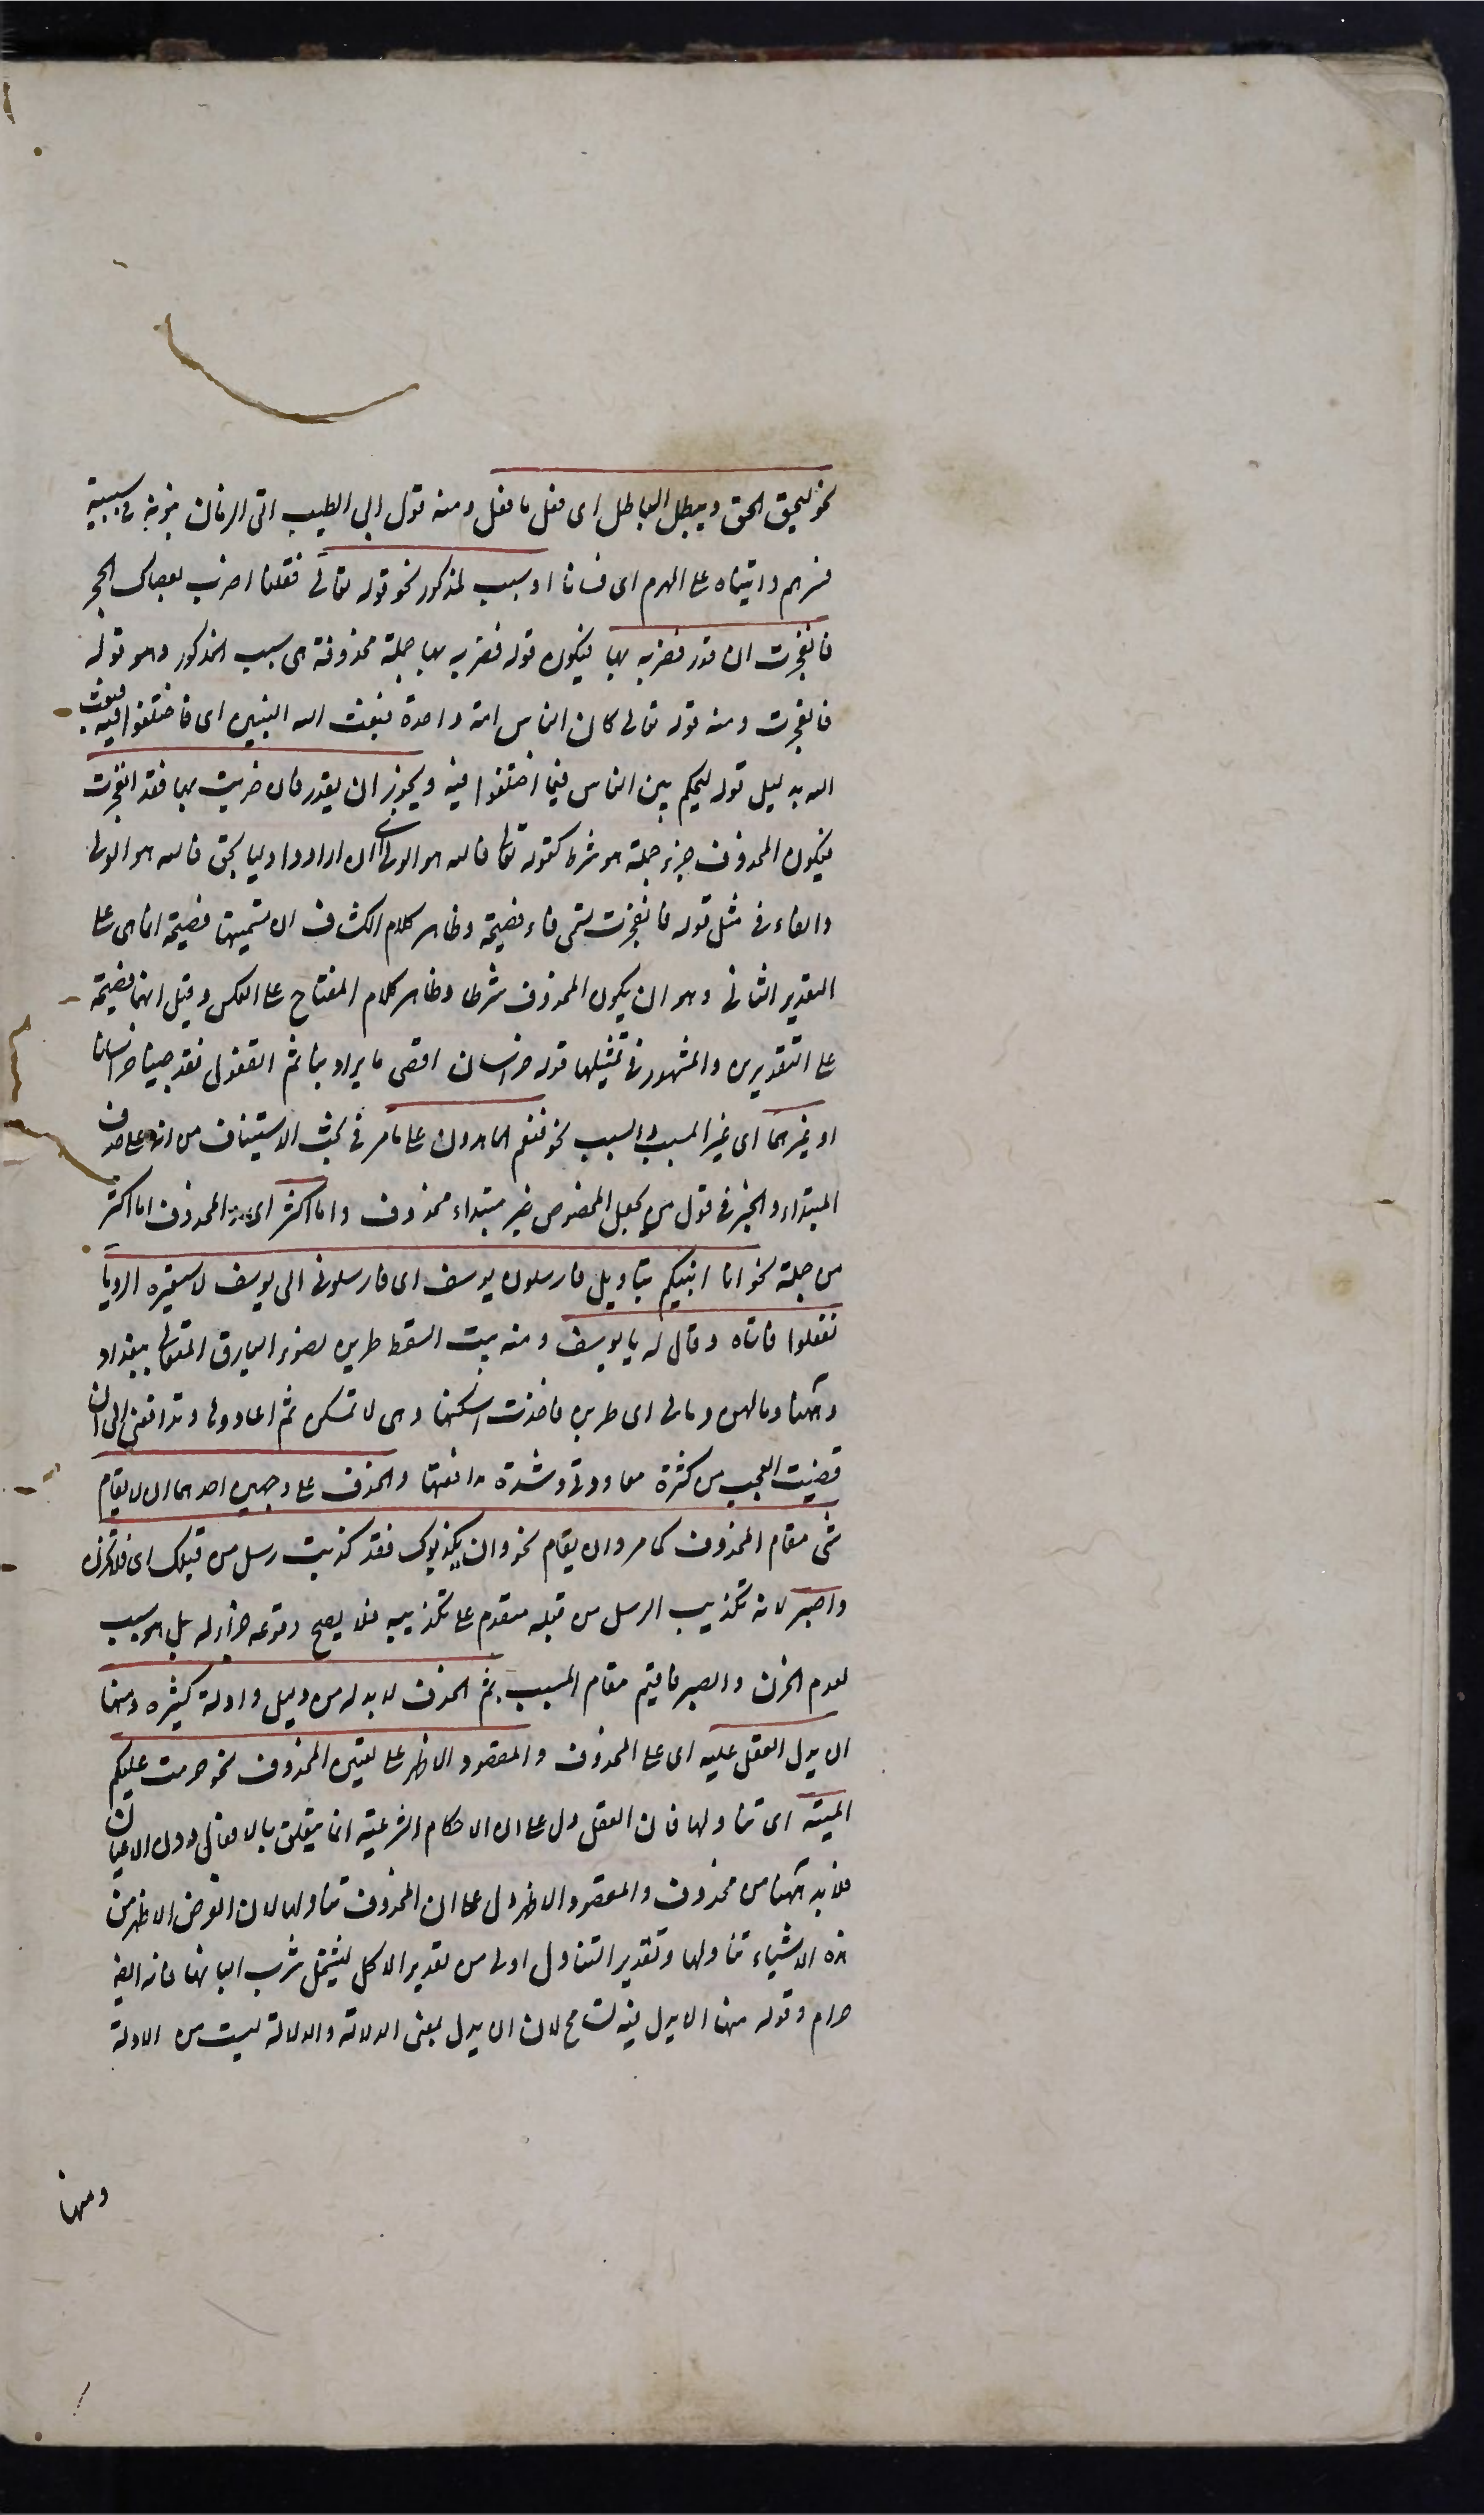 نحو ليحق الحق ويبطل الباطل اى فعل ما فعل ومنه قول ابى الطيب اتى الزمان بنوه فى شبيبته
فسرهم واتيناه على الهرم اى فساءنا او سبب لمذكور نحو قوله تعالى فقلنا اضرب بعصاك الحجر
فانفجرت ان قدر فضربه بها فيكون قوله فضربه بها جملة محذوفة هى سبب المذكور وهو قوله
فانفجرت ومنه قوله تعالى كان الناس امة واحدة فبعث الله النبيين اى فاختلفوا فيه فبعث
الله بدليل قوله ليحكم بين الناس فيما اختلفوا فيه ويجوز ان يقدر فان ضربت بها فقد انفجرت
فيكون المحذوف جزء جملة هو شرط كقوله تعالى فالله هو الولى اى ان ارادوا وليا بحق فالله هو الولى
والفاء فى مثل قوله فانفجرت تسمى فاء فصيحة وظاهر كلام الكشاف ان تسميتها فصيحة انما هى على
التقدير الثانى وهو ان يكون المحذوف شرطا وظاهر كلام المفتاح على العكس وقيل انها فصيحة
على التقديرين والمشهور فى تمثيلها قوله خراسان اقصى ما يراد بنا ثم القفول فقد جينا خراسانا
او غيرهما اى غير المسبب والسبب نحو فنعم الماهدون على ما مر فى بحث الاستيناف من انه على حذف
المبتداء والخبر فى قول من يجعل المخصوص خبر مبتداء محذوف واما اكثر اى المحذوف اما اكثر
من جملة نحو انا انبئكم بتاويله فارسلون يوسف اى فارسلونى الى يوسف لاستعبره الرويا
ففعلوا فاتاه وقال له يا يوسف ومنه بيت السقط طربن لضوء البارق المتعالى ببغداد
وهنا وما لهن ومالى اى طربن فاخذت اسكنها وهى لا تسكن ثم اعاودها وتدافعنى الى ان
قضيت العجب من كثرة معاودتى وشدة مدافعتها والحذف على وجهين احدهما ان لا يقام
شئ مقام المحذوف كما مر وان يقام نحو وان يكذبوك فقد كذبت رسل من قبلك اى فلا تحزن
واصبر لانه تكذيب الرسل من قبله متقدم على تكذيبه فلا يصح وقوعه جزاء له بل هو سبب
لعدم الحزن والصبر فاقيم مقام المسبب ثم الحذف لا بد له من دليل وادلته كثيره ومنها
ان يدل العقل عليه اى على المحذوف والمقصود الاظهر على تعيين المحذوف نحو حرمت عليكم
الميتة اى تناولها فان العقل دل على ان الاحكام الشرعية انما يتعلق بالافعال دون الاعيان
فلا بد هنا من محذوف والمقصود الاظهر دل على ان المحذوف تناولها لان الغرض الاظهر من
هذه الاشياء تناولها وتقدير التناول اولى من تقدير الاكل ليشمل شرب البانها فانه ايضا
حرام وقوله منها ان يدل فيه تسامح لان ان يدل بمعنى الدلالة والدلالة ليست من الادلة
ومنها